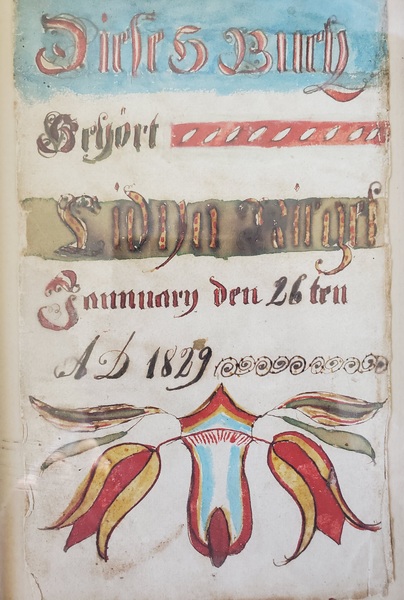 Dieses Buch
Gehört
Lidya
Jannuary den 26ten
AD 1829